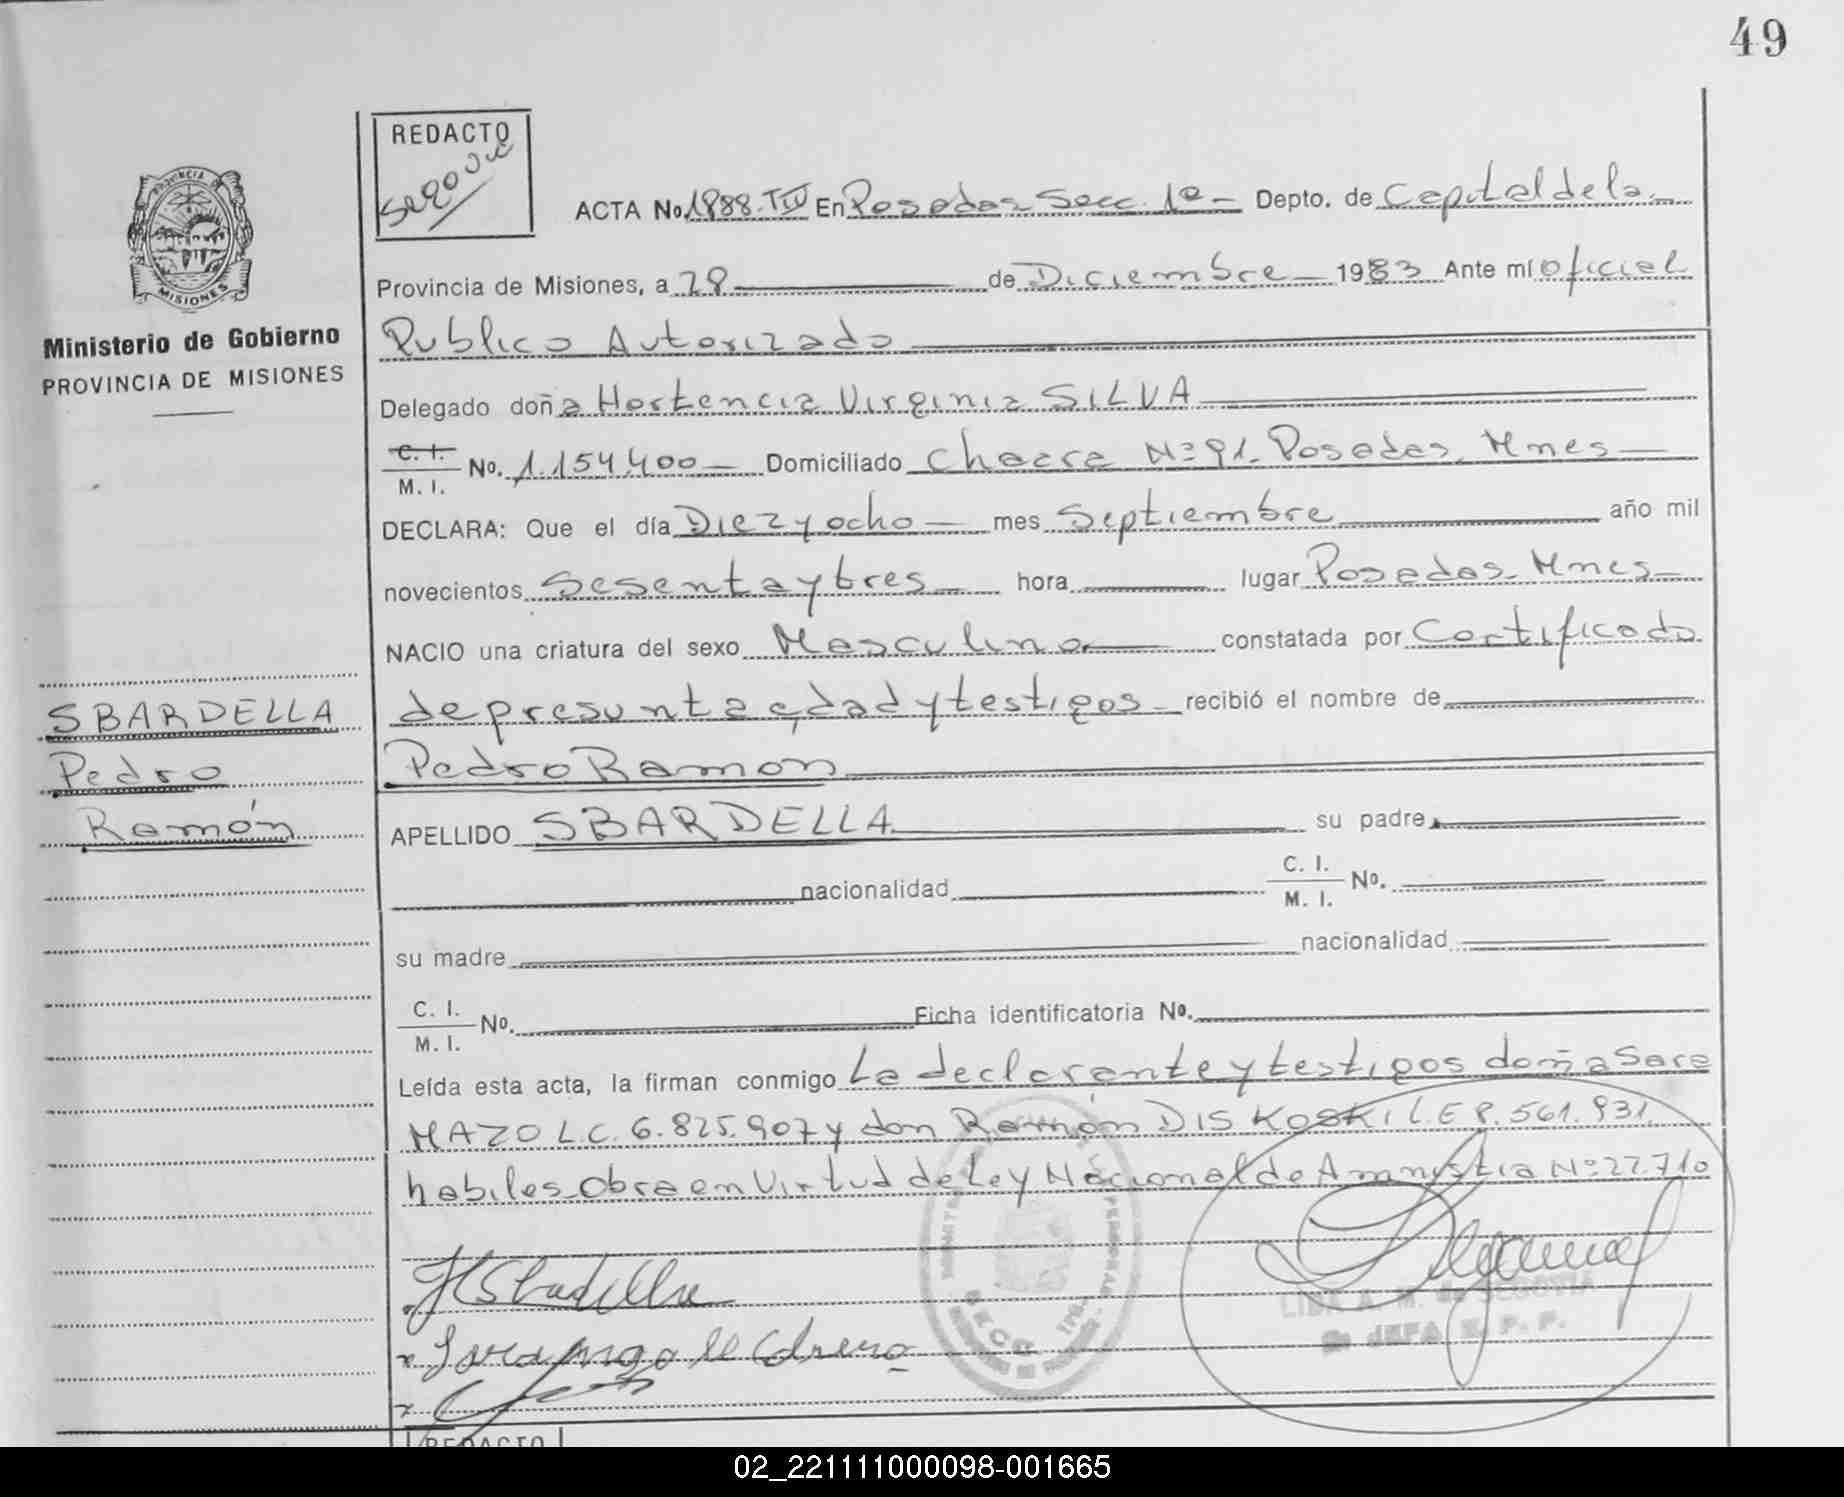 49
REDACTO
Segovia
ACTA No 1888-TIV En Posadas Secc. 1º - Depto. de Capital de la
Provincia de Misiones, a 28 de Diciembre 1983 Ante mí oficial
Publico Autorizado
Delegado doña Hortencia Virginia SILVA
C. I.
M. I.
No. 1.154.400 Domiciliado Chacra Nº 91. Posadas Mnes
DECLARA: Que el día Diez y ocho mes Septiembre año mil
novecientos Sesenta y tres hora lugar Posadas - Mnes
NACIO una criatura del sexo Masculino constatada por Certificado
de presunta edad y testigos - recibió el nombre de
Pedro Ramon
APELLIDO SBARDELLA su padre
nacionalidad C. I.
M. I. No.
su madre nacionalidad
C. I.
M. I. No. Ficha identificatoria No.
Leída esta acta, la firman conmigo La declarante y testigos doña Sara
MAZO L.C. 6.825.907 y don Ramón DISKOSKI L.E 8.561.931.
habiles obra en Virtud de Ley Nacional de Amnistia Nº 22.710
PROVINCIA DE
MISIONES
Ministerio de Gobierno
PROVINCIA DE MISIONES
SBARDELLA
Pedro
Ramón
de SEGOVIA
JEFA
REDACTO
02_221111000098-001665